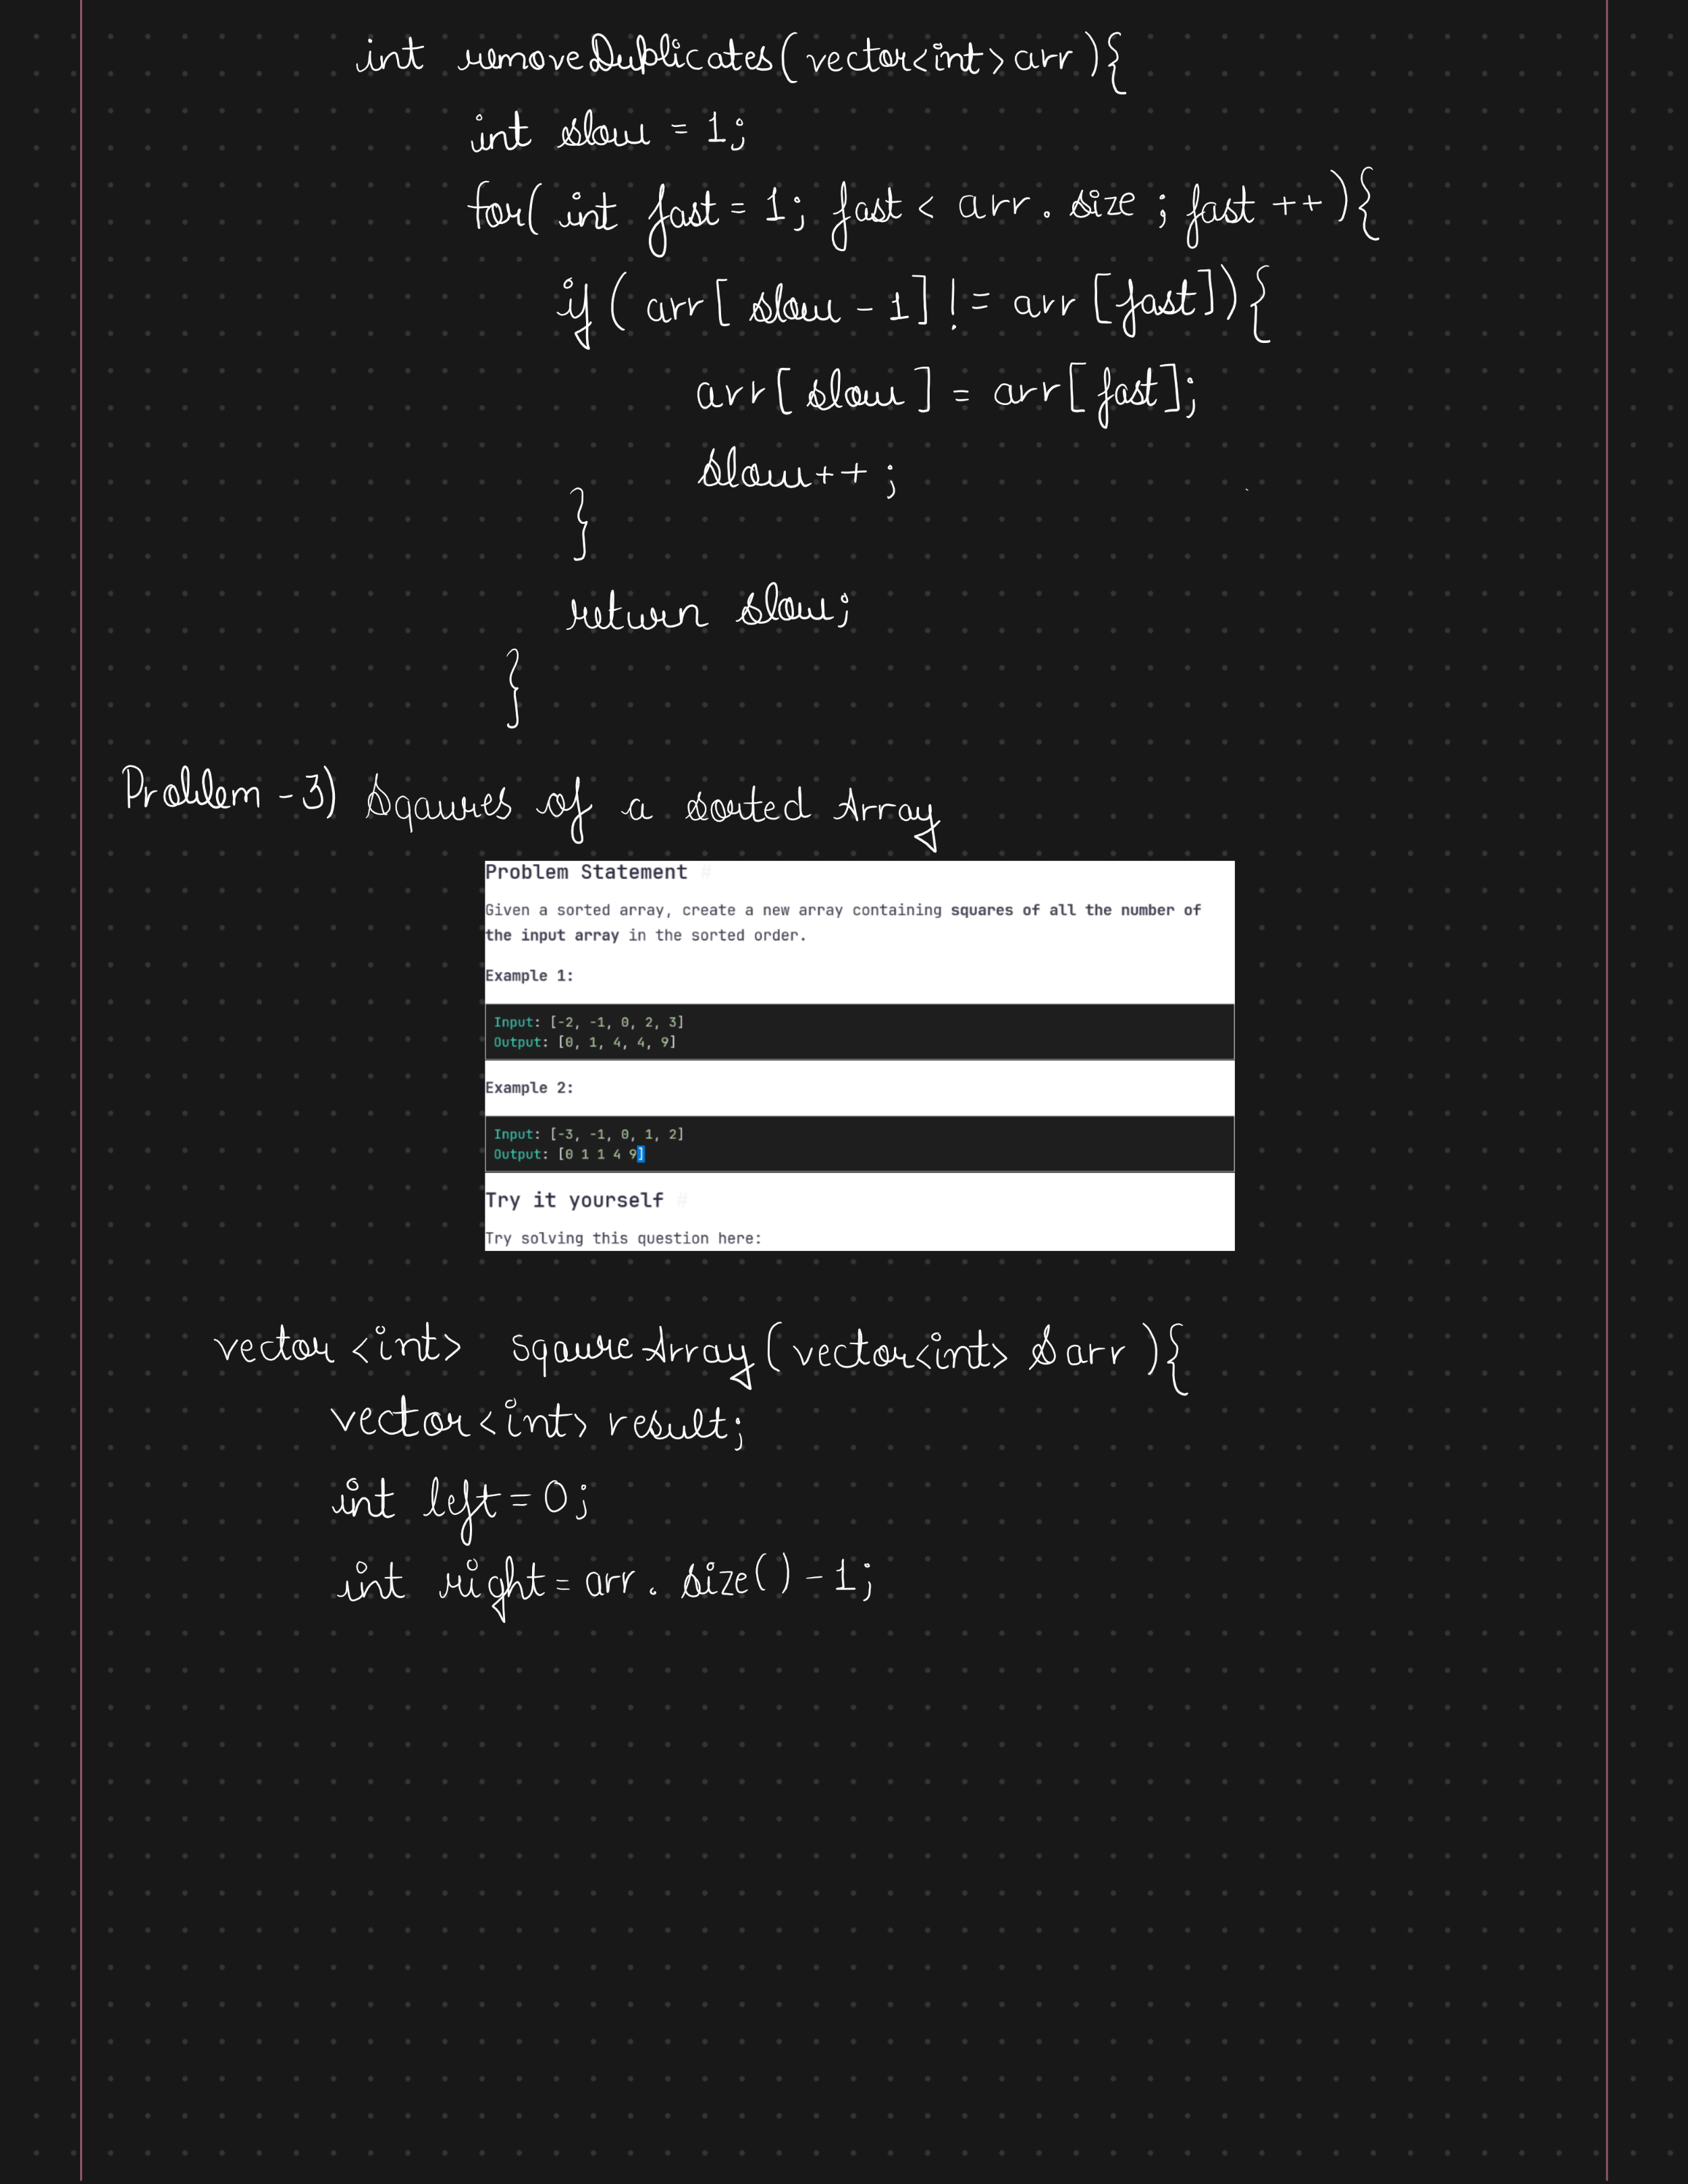 int removeDublicates(vector<int>arr){
int slow = 1;
for( int fast = 1; fast < arr. size ; fast ++){
if ( arr[ slow - 1] != arr [fast]){
arr[ slow ] = arr[ fast];
slow++ ;
}
return slow;
}
Problem -3) Sqaures of a sorted Array
Problem Statement #
Given a sorted array, create a new array containing squares of all the number of
the input array in the sorted order.
Example 1:
Input: [-2, -1, 0, 2, 3]
Output: [0, 1, 4, 4, 9]
Example 2:
Input: [-3, -1, 0, 1, 2]
Output: [0 1 1 4 9]
Try it yourself #
Try solving this question here:
vector <int> sqaureArray(vector<int> &arr ){
vector<int> result;
int left = 0;
int right = arr. size() - 1;